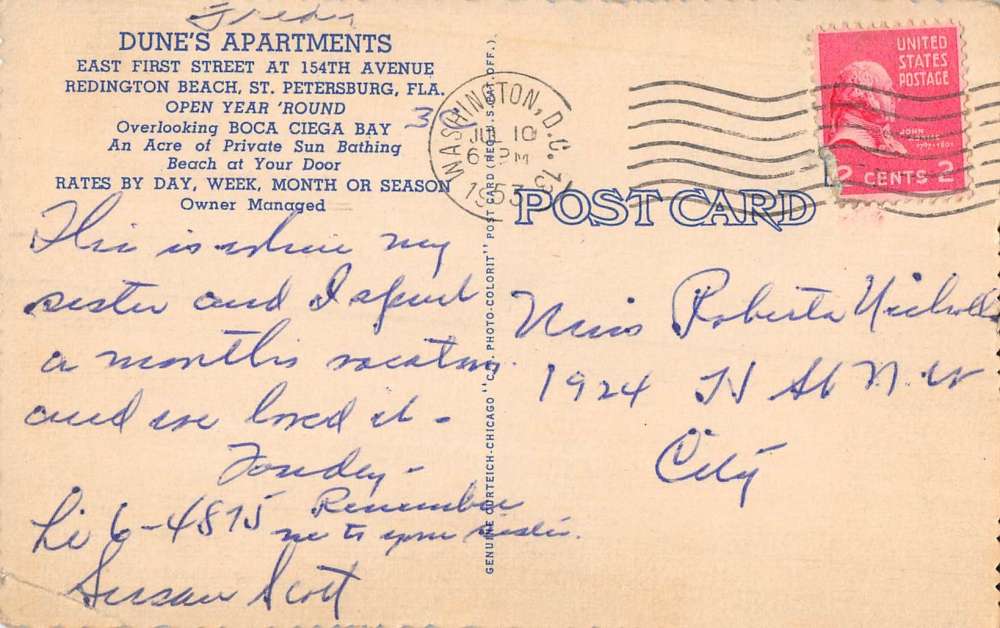 DUNE'S APARTMENTS
EAST FIRST STREET AT 154TH AVENUE
REDINGTON BEACH, ST. PETERSBURG, FLA.
OPEN YEAR 'ROUND
Overlooking BOCA CIEGA BAY
An Acre of Private Sun Bathing
Beach at Your Door
RATES BY DAY, WEEK, MONTH OR SEASON
Owner Managed
This is where my
sister and I spent
a month's vacation
and we loved it -
Fondly -
Li 6-4875 Remember
me to your sister.
Susan Scott
GENUINE CURTEICH-CHICAGO "C.T. PHOTO-COLORIT" POST CARD (REG. U.S. PAT. OFF.)
WASHINGTON, D.C. 13
JUL 10
PM
1953
UNITED
STATES
POSTAGE
JOHN
2 CENTS 2
POST CARD
Miss Roberta Nicholls
1924 H St N.W
City